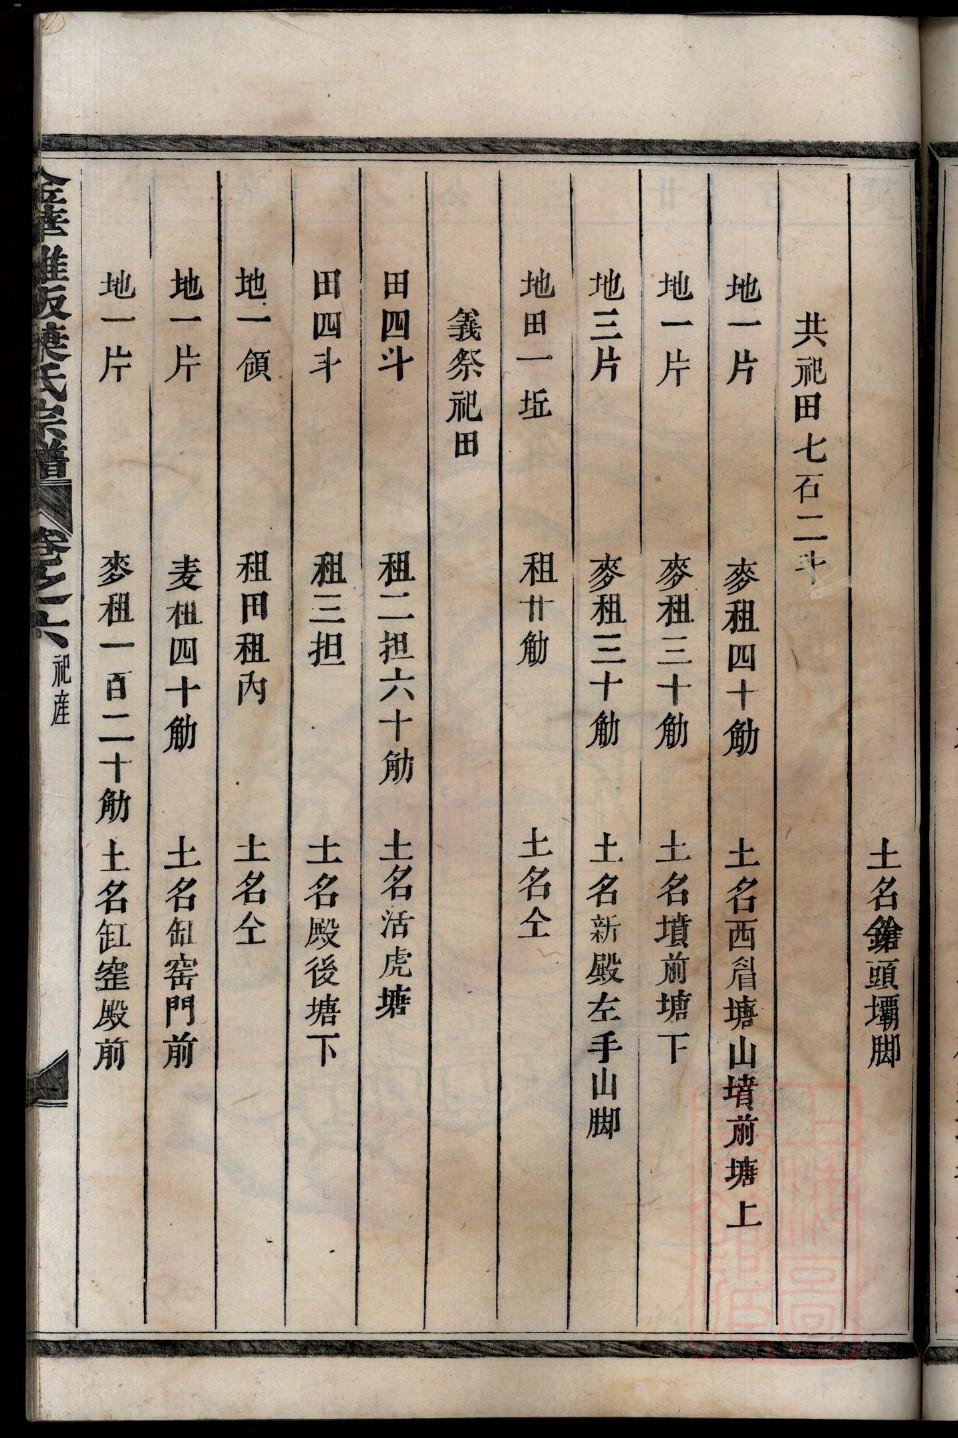 土名鎗頭壩脚
共祀田七石二斗
地一片 麥租四十觔 土名西眉塘山墳前塘上
地一片 麥租三十觔 土名墳前塘下
地三片 麥租三十觔 土名新殿左手山脚
地田一坵 租廿觔 土名仝
義祭祀田
田四斗 租二担六十觔 土名活虎塘
田四斗 租三担 土名殿後塘下
地一領 租田租內 土名仝
地一片 麦租四十觔 土名缸窑門前
地一片 麥租一百二十觔 土名缸窑殿前
氏宗譜 卷之六 祀産